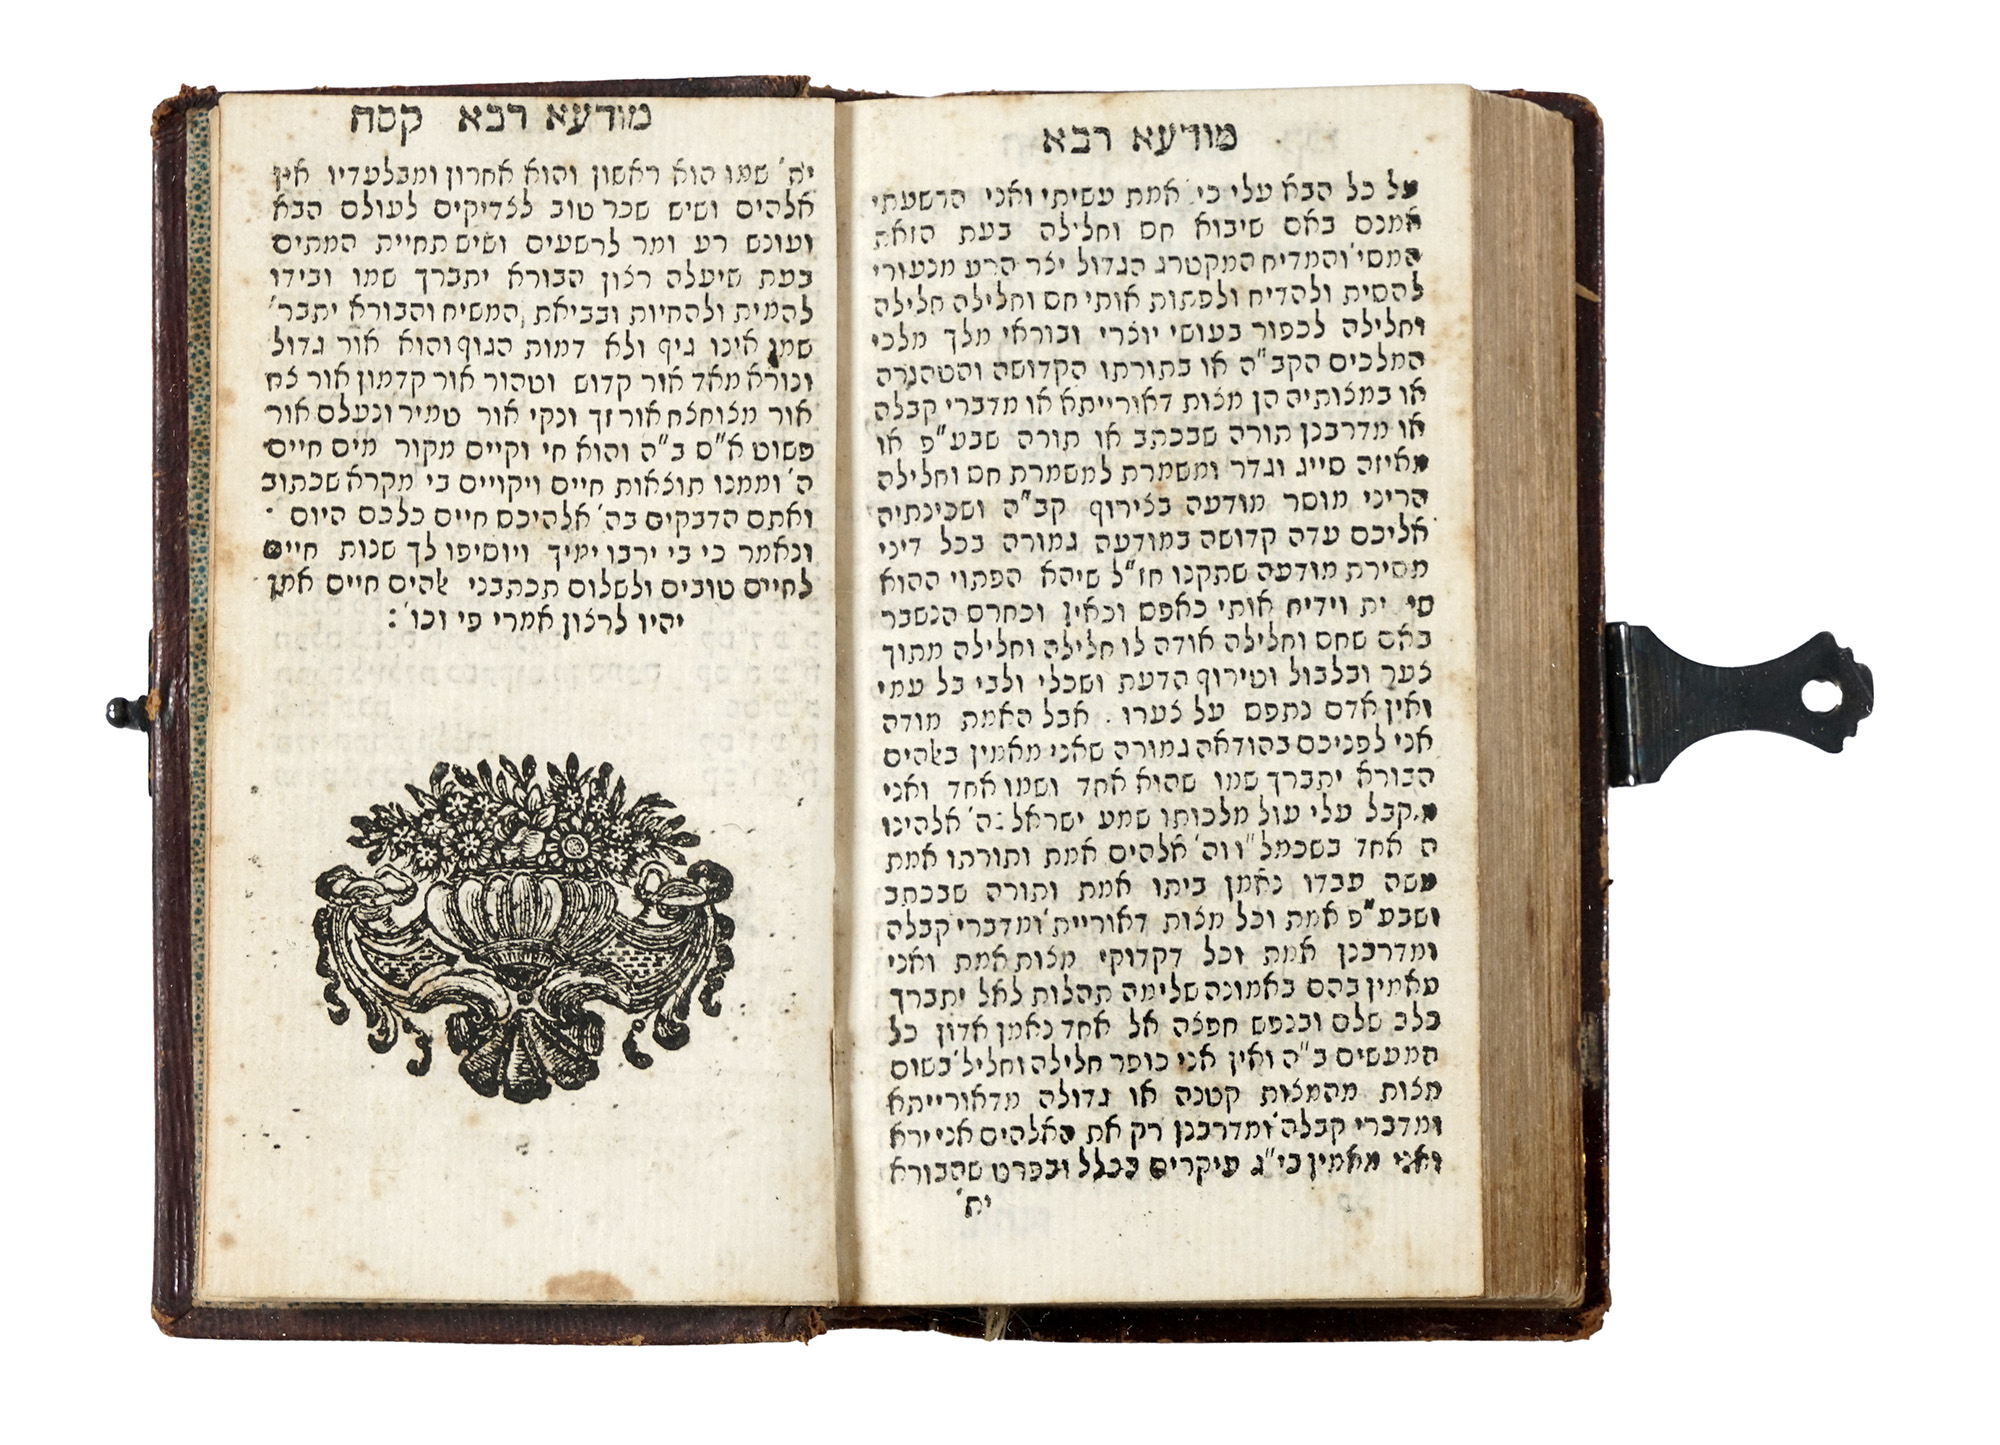 מודעא רבא
על כל הבא עלי כי אמת עשיתי ואני הרשעתי
אמנם באם שיבוא חס וחלילה בעת הזאת
המסי' והמדיח המקטרג הגדול יצר הרע מנעורי
להסית ולהדיח ולפתות אותי חס וחלילה חלילה
וחלילה לכפור בעושי יוצרי ובוראי מלך מלכי
המלכים הקב"ה או בתורתו הקדושה והטהורה
או במצותיה הן מצות דאורייתא או מדברי קבלה
או מדרבנן תורה שבכתב או תורה שבע"פ או
מאיזה סייג וגדר ומשמרת למשמרת חס וחלילה
הריני מוסר מודעה בצירוף קב"ה ושכינתיה
אליכם עדה קדושה במודעה גמורה בכל דיני
מסירת מודעה שתקנו חז"ל שיהא הפתוי ההוא
וידיח אותי כאפס וכאין וכחרס הנשבר
באם שחס וחלילה אודה לו חלילה וחלילה מתוך
צער ובלבול וטירוף הדעת ושכלי ולבי בל עמי
ואין אדם נתפס על צערו . אבל האמת מודה
אני לפניכם בהודאה גמורה שאני מאמין באלהים
הבורא יתברך שמו שהוא אחד ושמו אחד ואני
מקבל עלי עול מלכותו שמע ישראל ה' אלהינו
ה אחד בשכמל"ו וה' אלהים אמת ותורתו אמת
משה עבדו נאמן ביתו אמת ותורה שבכתב
ושבע"פ אמת וכל מצות דאוריית' ומדברי קבלה
ומדרבנן אמת וכל דקדוקי מצות אמת ואני
מאמין בהם באמונה שלימה תהלות לאל יתברך
בלב שלם ובנפש חפצה אל אחד נאמן אדון כל
המעשים ב"ה ואין אני כופר חלילה וחליל' בשום
מצות מהמצות קטנה או גדולה מדאורייתא
ומדברי קבלה ומדרבנן רק את האלהים אני ירא
ואני מאמין בי"ג עיקרים בכלל ובפרט שהבורא
ית'
מודעא רבא קסח
ית' שמו הוא ראשון והוא אחרון ומבלעדיו אין
אלהים ושיש שכר טוב לצדיקים לעולם הבא
ועונש רע ומר לרשעים ושיש תחיית המתים
בעת שיעלה רצון הבורא יתברך שמו ובידו
להמית ולהחיות ובביאת המשיח והבורא יתבר'
שמו אינו גוף ולא דמות הגוף והוא אור גדול
ונורא מאד אור קדוש וטהור אור קדמון אור צח
אור מצוחצח אור זך ונקי אור טמיר ונעלם אור
פשוט א"ס ב"ה והוא חי וקיים מקור מים חיים
ה' וממנו תוצאות חיים ויקויים בי מקרא שכתוב
ואתם הדבקים בה' אלהיכם חיים כלכם היום
ונאמר כי בי ירבו ימיך ויוסיפו לך שנות חיים
לחיים טובים ולשלום תכתבני אלהים חיים אמן
יהיו לרצון אמרי פי וכו' :